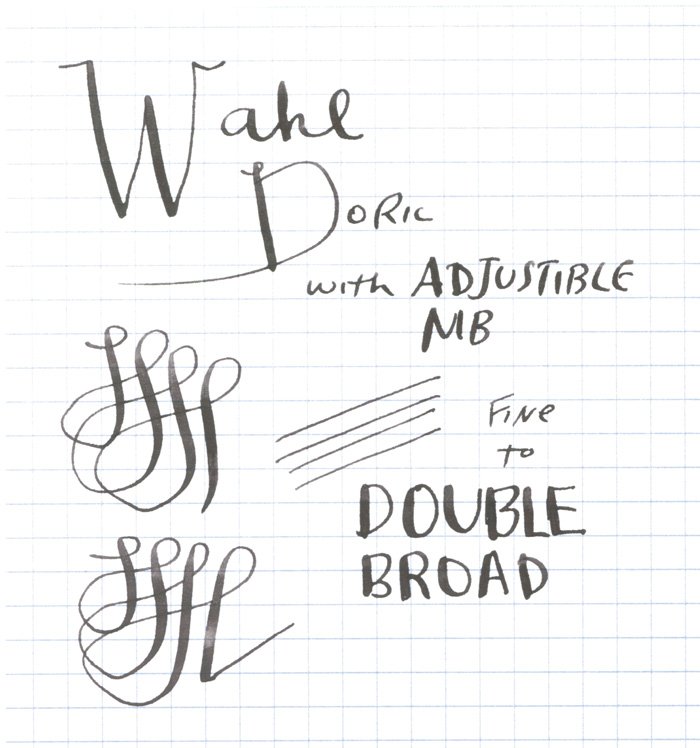 Wahl
DORIC
with ADJUSTIBLE
NIB
FINE
to
DOUBLE
BROAD